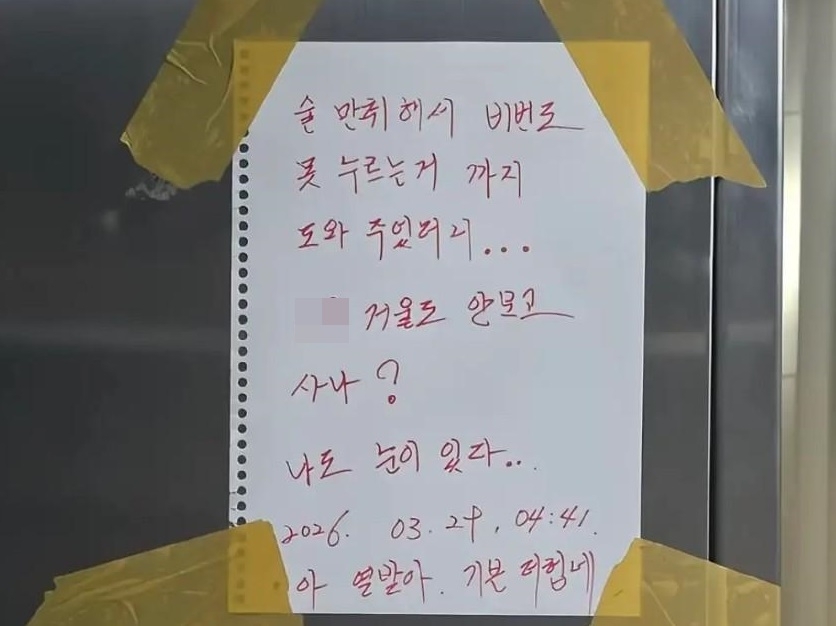 술 만취해서 비번도
못 누르는거 까지
도와 주었더니...
거울도 안보고
사나?
나도 눈이 있다...
2026. 03. 29. 04:41.
아 열받아. 기분 더럽네